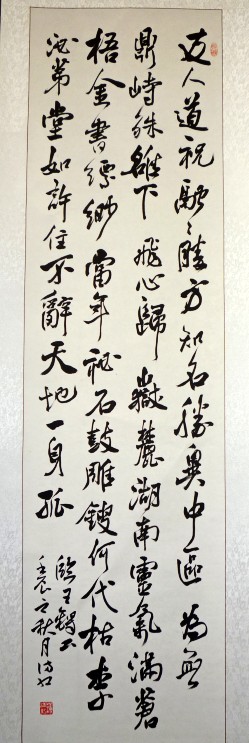 友人道祝融〻勝方知名勝異中區為無
鼎峙下飛心歸嶽麓湖南靈氣滿蒼
梧金書縹緲當年祕石鼓雕鎪何代枯李
泌第堂如許住不辭天地一身孤
臨王鐸
壬辰之秋月